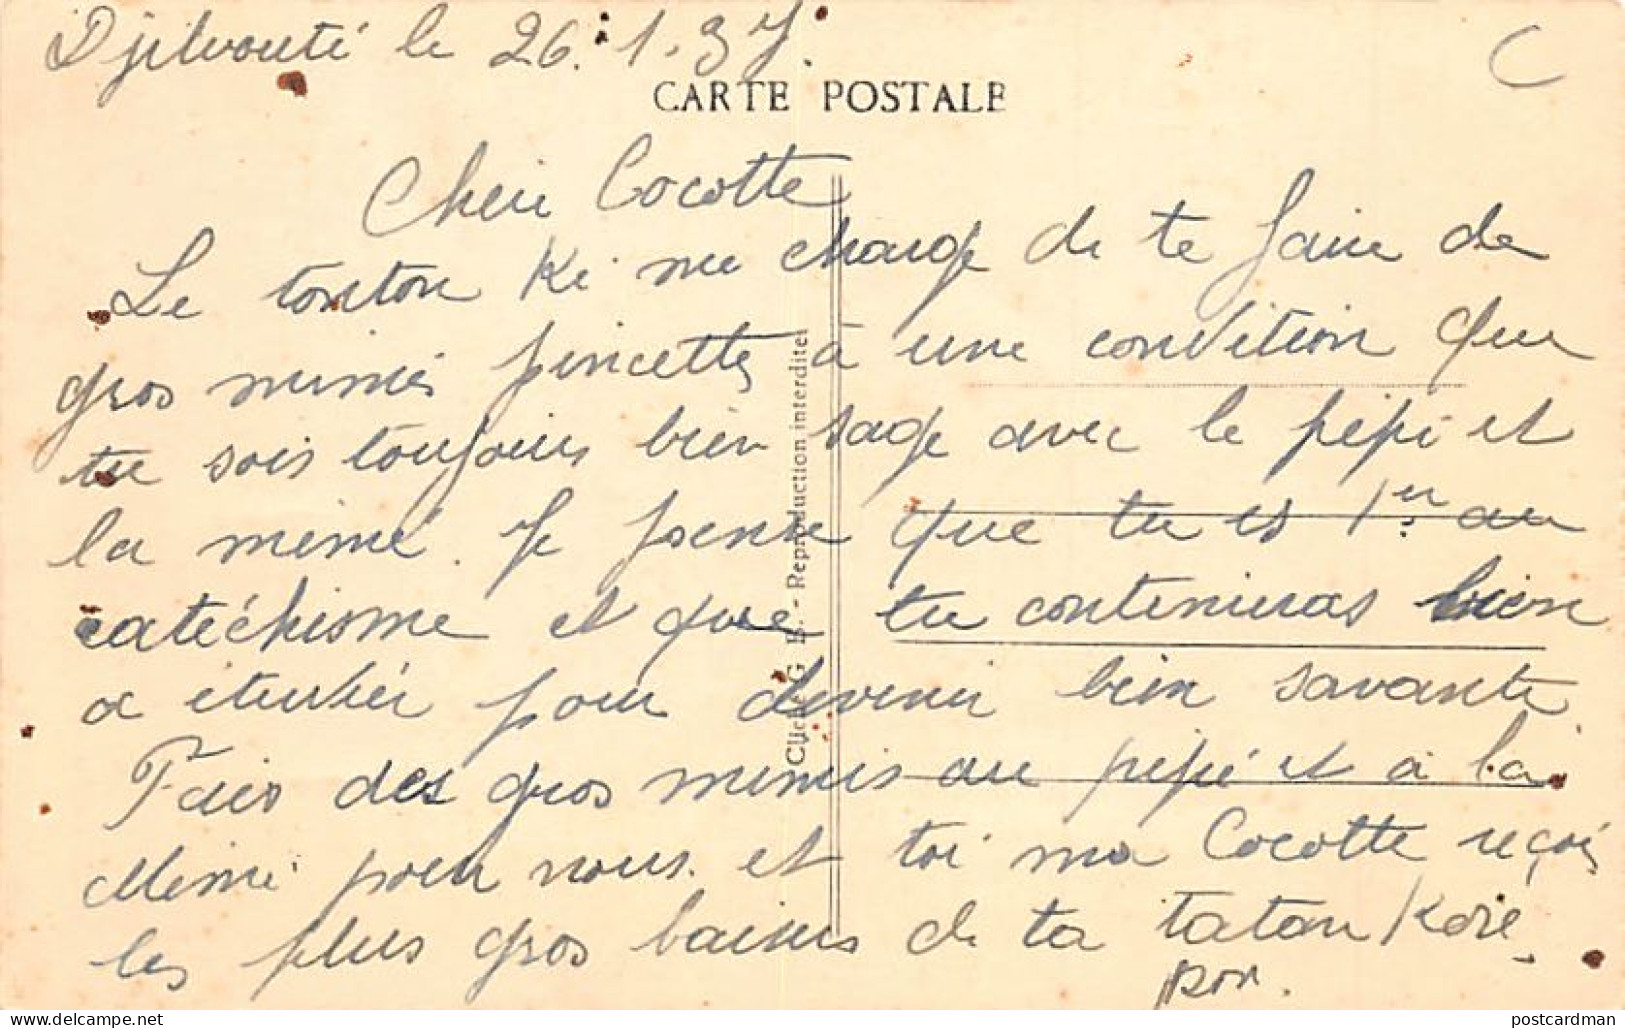 Djibouti le 26.1.37.
C
CARTE POSTALE
Cheri Cocotte
Le tonton Ki me charge de te faire de
gros mimis pincettes à une condition que
tu sois toujours bien sage avec le pépé et
la mémé. Je pense que tu es 1er au
catéchisme et que tu continueras bien
a étudier pour devenir bien savante
Fais des gros mimis au pépé et à la
Mémé pour nous. et toi ma Cocotte reçois
les plus gros baisers de ta tatan Koré
Cliché G - Reproduction interdite
postcardman